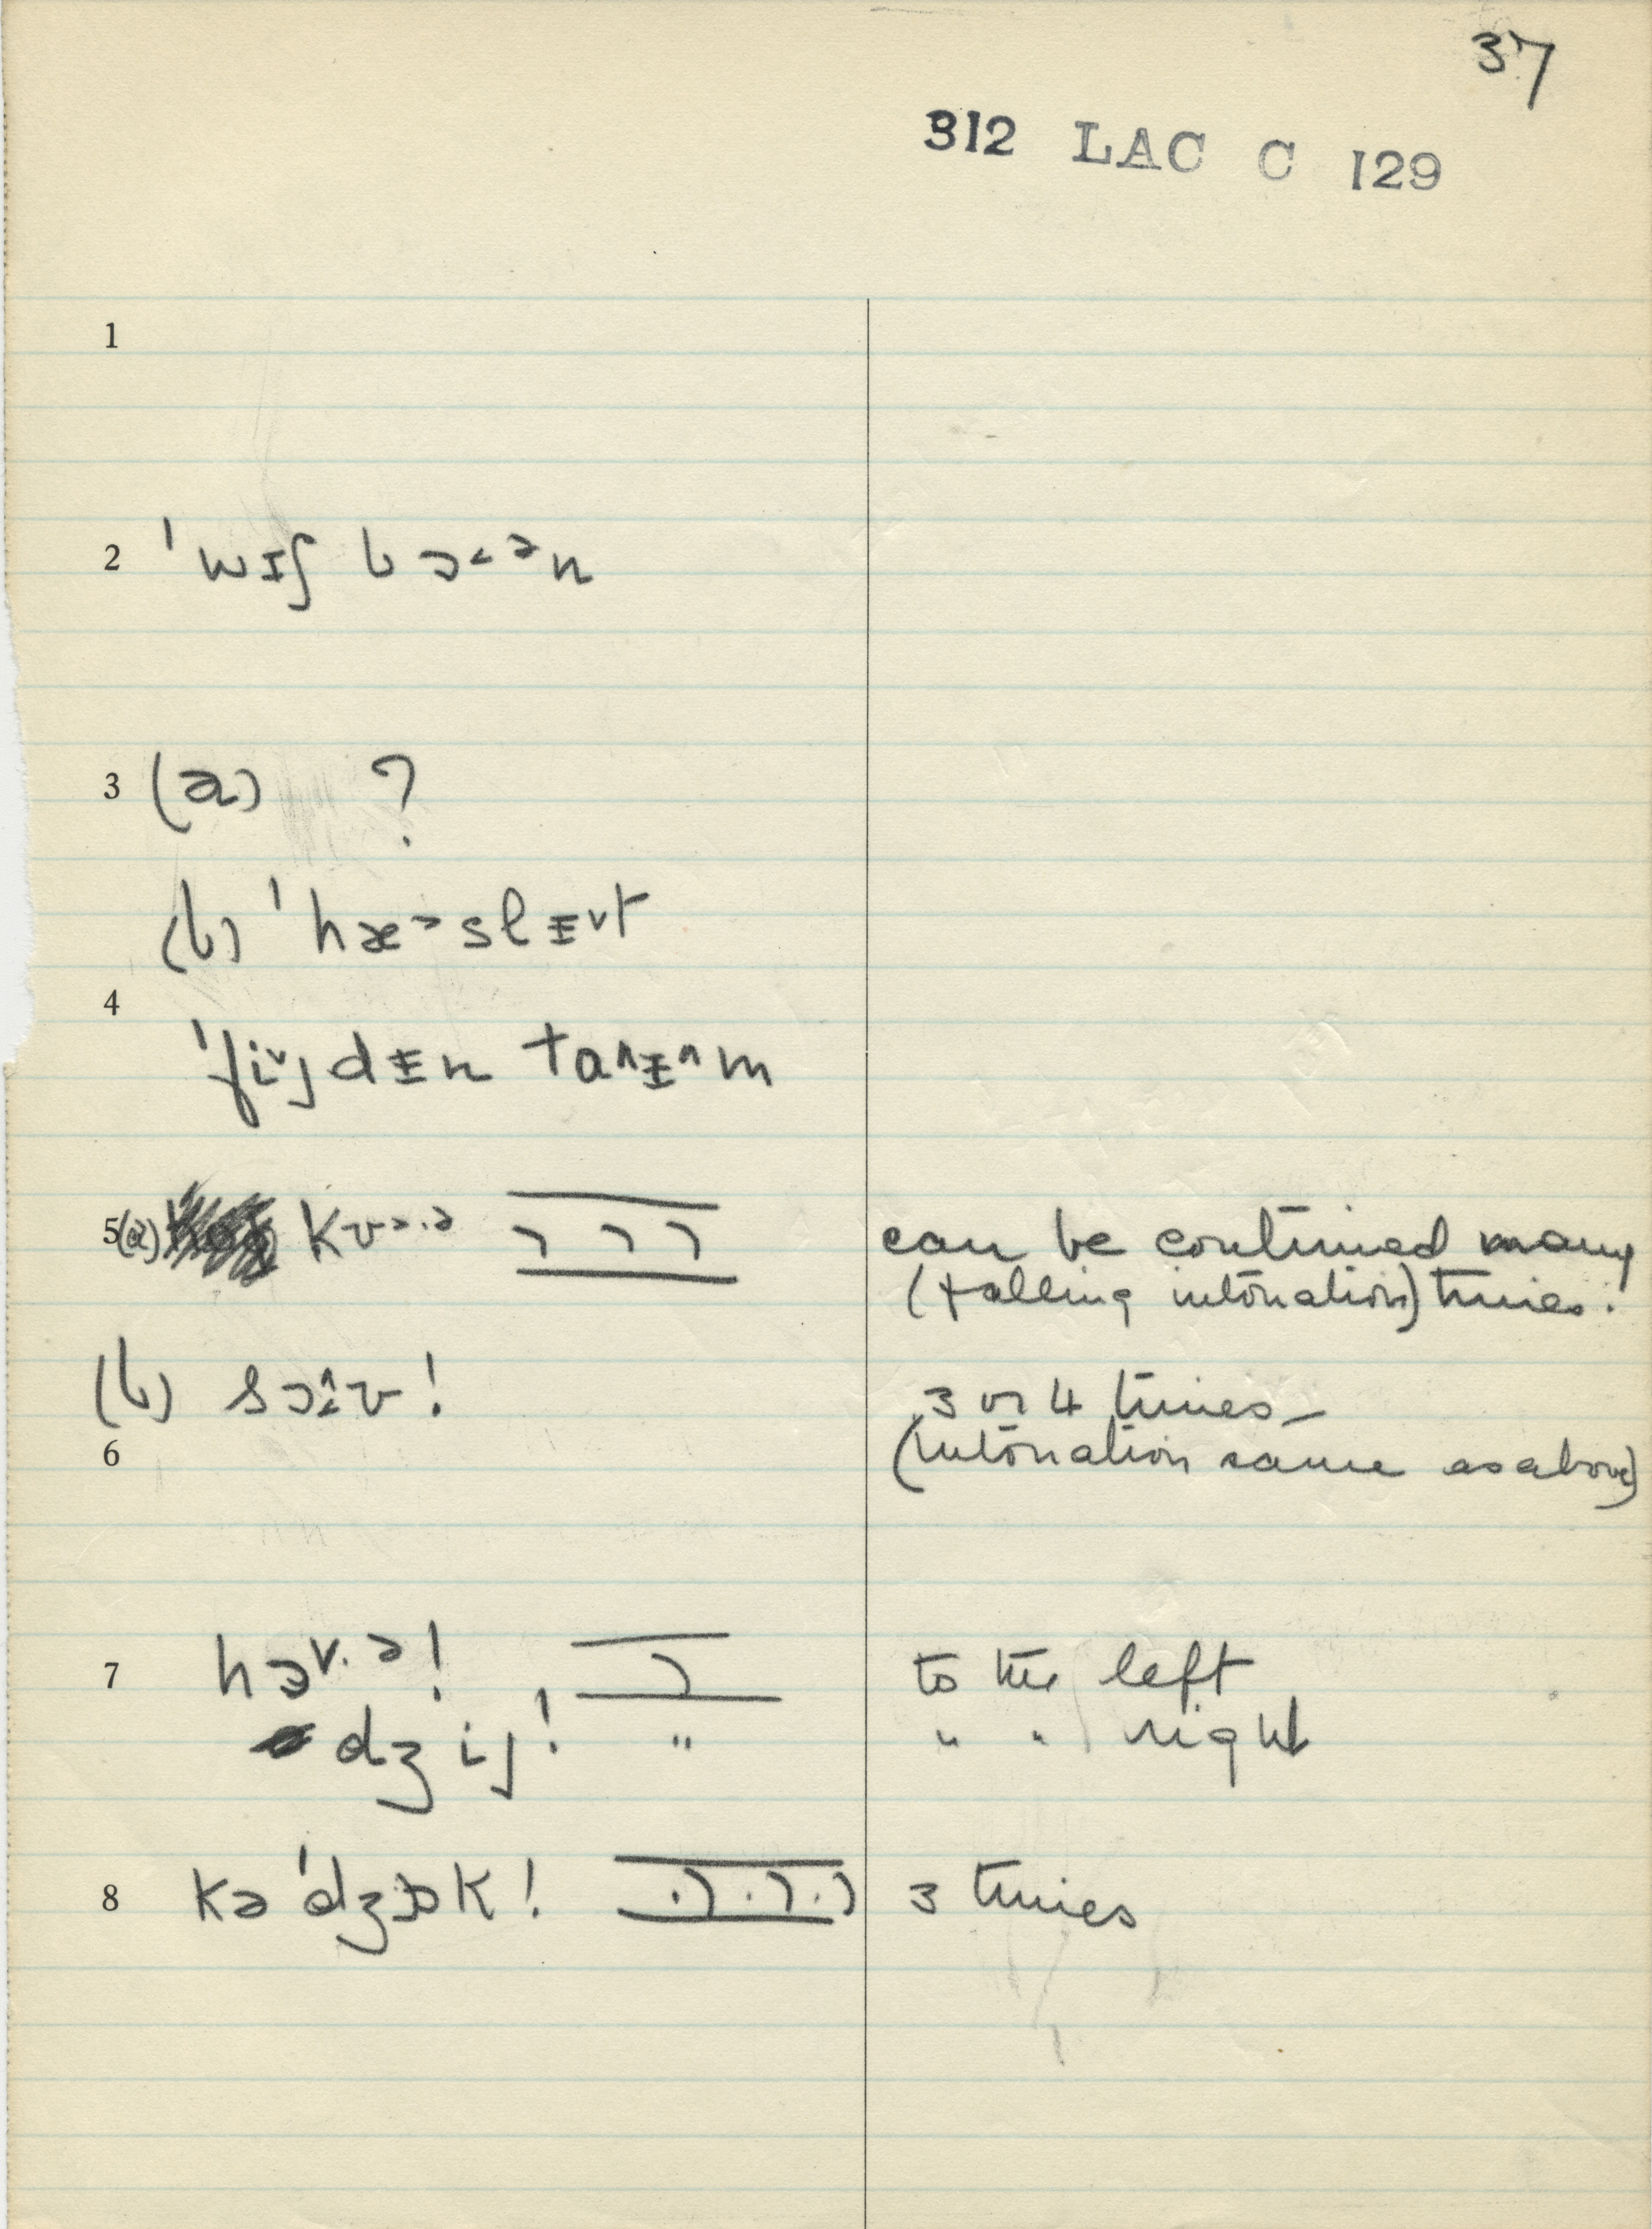 37
312 LAC C 129
1
2 ˈwɪʃ bɔ˂ᵊn
3 (a) ?
(b) ˈhæᵊslɪ˅t
4
ˈfi˅jdɪn taˆɪˆm
5(a) kʊᵊ·ᵊ
can be continued many
(falling intonation) times.
(b) sɔˆɪʊ!
3 or 4 times –
6
(intonation same as above)
7 hə˅·ᵊ! to the left
dʒij! " " " right
8 kəˈdʒɒk! 3 times